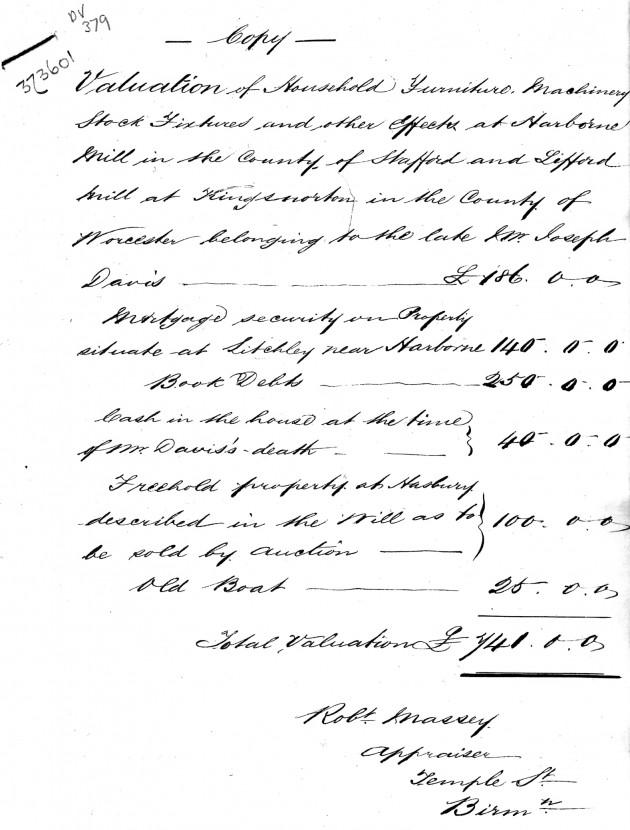 DV
379
373601
— Copy —
Valuation of Household Furniture, Machinery
Stock Fixtures and other Effects at Harborne
Mill in the County of Stafford and Lifford
Mill at Kingsnorton in the County of
Worcester belonging to the late Mr. Joseph
Davis — £186. 0. 0
Mortgage security on Property
situate at Litchley near Harborne 140. 0. 0
Book Debts — 250. 0. 0
Cash in the house at the time
of Mr. Davis's death — } 40. 0. 0
Freehold property at Hasbury
described in the Will as to } 100. 0. 0
be sold by auction —
Old Boat — 25. 0. 0
Total Valuation £ 741. 0. 0
Robt. Massey
Appraiser
Temple St
Birmn